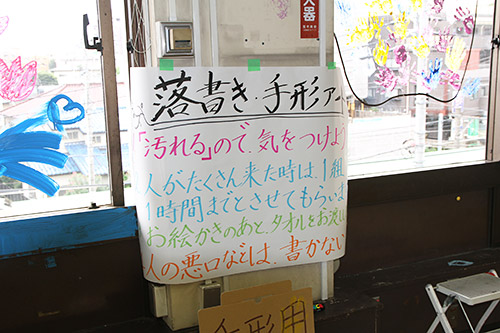 器
落書き・手形ア
「汚れる」ので、気をつけよ
人がたくさん来た時は、1組
1時間までとさせてもらいま
お絵かきのあと、タオルをお渡し
人の悪口などは、書かない
手形用